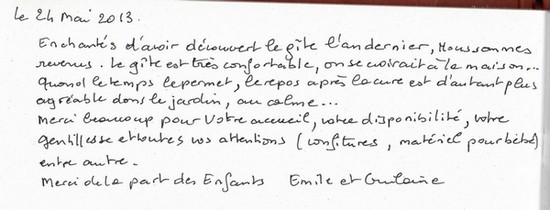 le 24 Mai 2013.
Enchantés d'avoir découvert le gîte l'an dernier, Nous sommes
revenus. Le gîte est très confortable, on se croirait à la maison...
Quand le temps le permet, le repos après la cure est d'autant plus
agréable dans le jardin, au calme...
Merci beaucoup pour Votre accueil, votre disponibilité, votre
gentillesse et toutes vos attentions (confitures, matériel pour bébé)
entre autre.
Merci de la part des Enfants Emile et